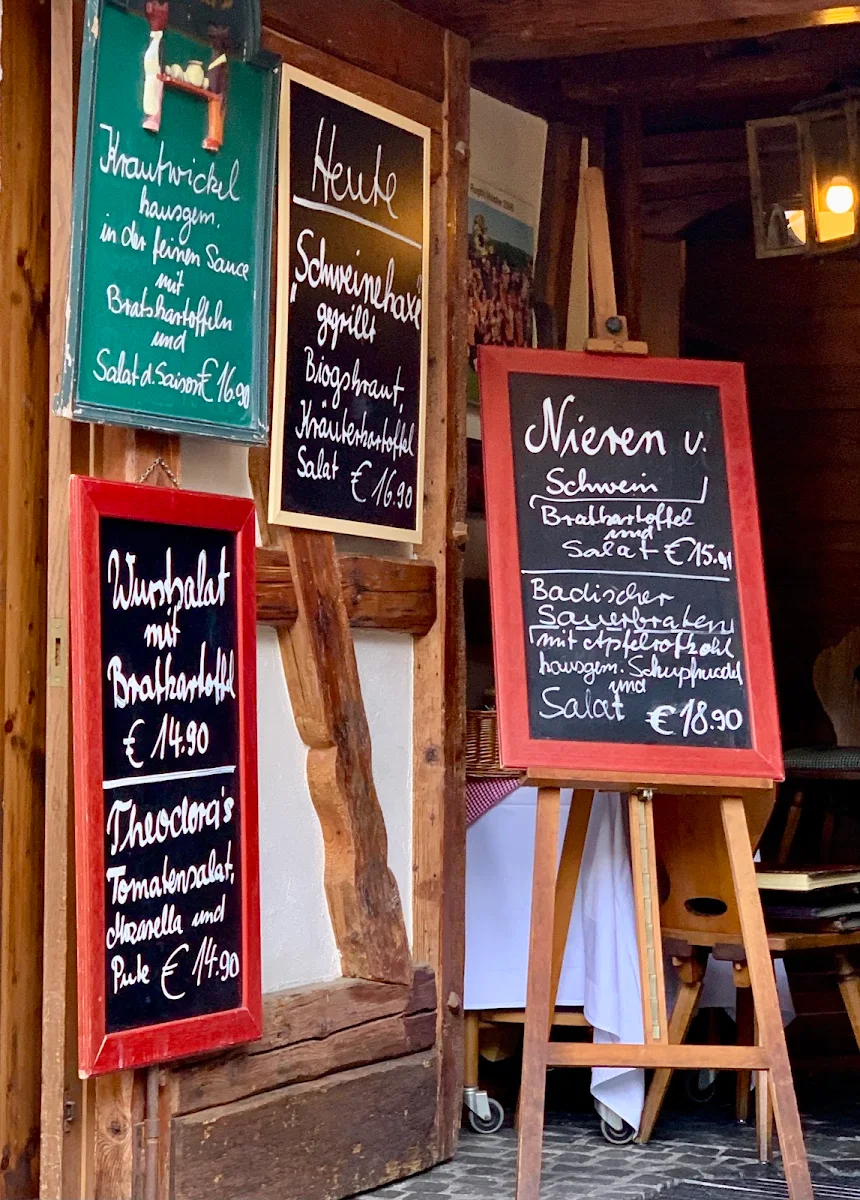 Krautwickel
hausgem.
in der feinen Sauce
mit
Bratkartoffeln
und
Salat d. Saison € 16.90
Heute
"Schweinehaxe"
gegrillt
Kräuterkartoffel
Salat € 16.90
Wurstsalat
mit
Bratkartoffel
€ 14.90
Theodora's
Tomatensalat,
Mozarella und
Pute € 14.90
Nieren v.
Schwein
Bratkartoffel
und
Salat €15.
Badischer
Sauerbraten
mit Apfelrotkohl
hausgem. Schupfnudel
und
Salat €18.90